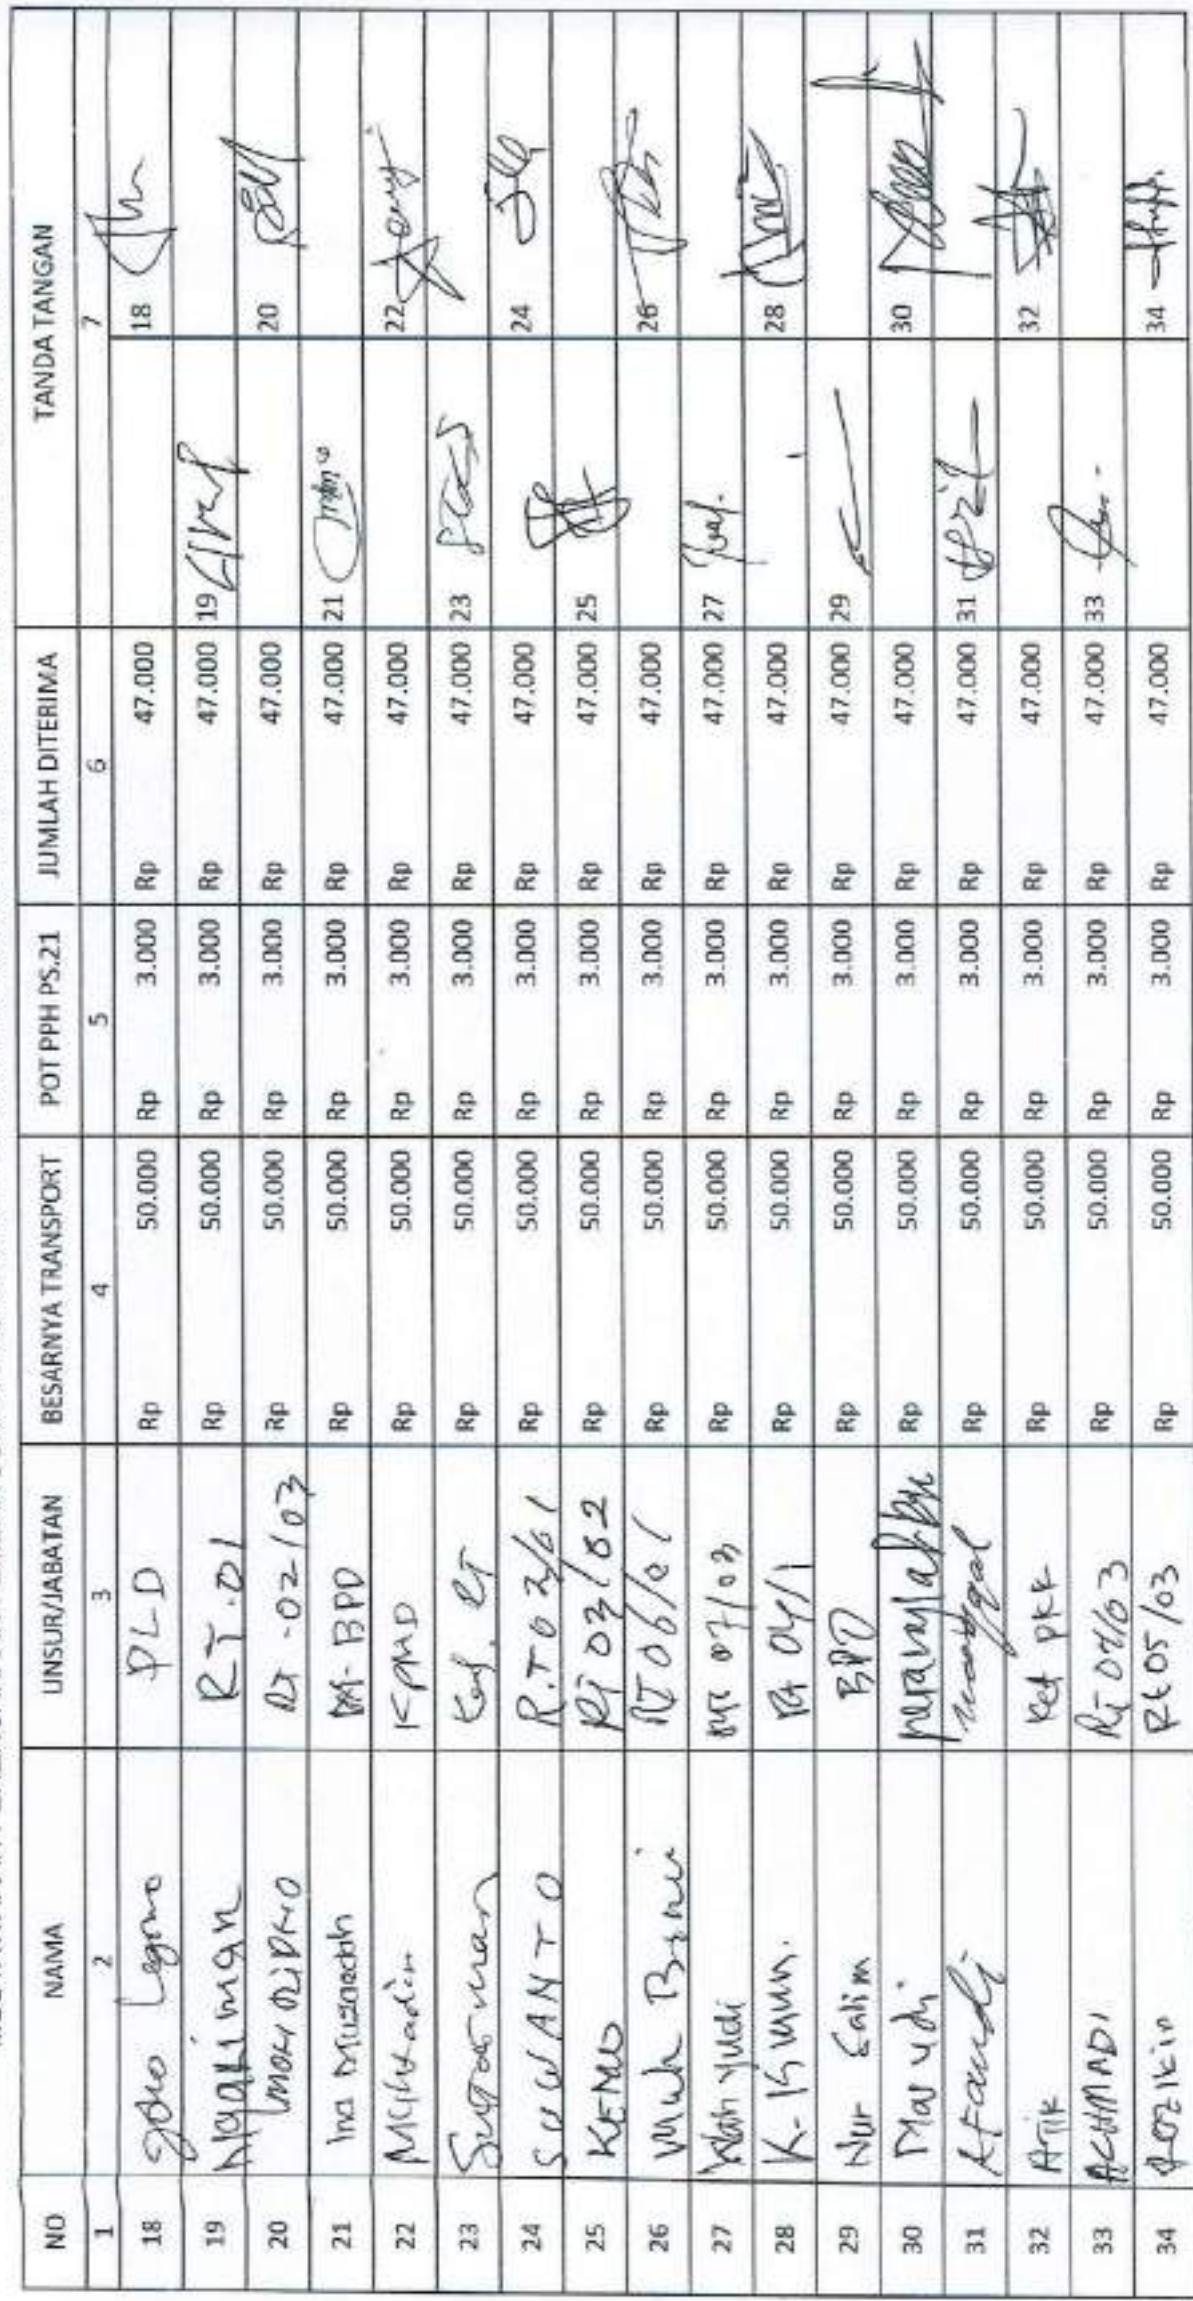 NO NAMA UNSUR/JABATAN BESARNYA TRANSPORT POT PPH PS.21 JUMLAH DITERIMA TANDA TANGAN
1 2 3 4 5 6 7
18 Joko Legowo PLD Rp 50.000 Rp 3.000 Rp 47.000 18
19 Ngakiman RT.01 Rp 50.000 Rp 3.000 Rp 47.000 19
20 RT-02/03 Rp 50.000 Rp 3.000 Rp 47.000 20
21 Ina Muzaedah BPD Rp 50.000 Rp 3.000 Rp 47.000 21
22 KPMD Rp 50.000 Rp 3.000 Rp 47.000 22
23 RT Rp 50.000 Rp 3.000 Rp 47.000 23
24 SUWANTO R.T 02/01 Rp 50.000 Rp 3.000 Rp 47.000 24
25 RT 03/02 Rp 50.000 Rp 3.000 Rp 47.000 25
26 Muh RT 06/01 Rp 50.000 Rp 3.000 Rp 47.000 26
27 Wahyudi 07/03 Rp 50.000 Rp 3.000 Rp 47.000 27
28 RT 04/1 Rp 50.000 Rp 3.000 Rp 47.000 28
29 Nur Salim BPD Rp 50.000 Rp 3.000 Rp 47.000 29
30 Masudi Rp 50.000 Rp 3.000 Rp 47.000 30
31 Afandi Rp 50.000 Rp 3.000 Rp 47.000 31
32 Atik Ket PKK Rp 50.000 Rp 3.000 Rp 47.000 32
33 ACHMADI RT 04/03 Rp 50.000 Rp 3.000 Rp 47.000 33
34 ROZIKIN Rt 05/03 Rp 50.000 Rp 3.000 Rp 47.000 34